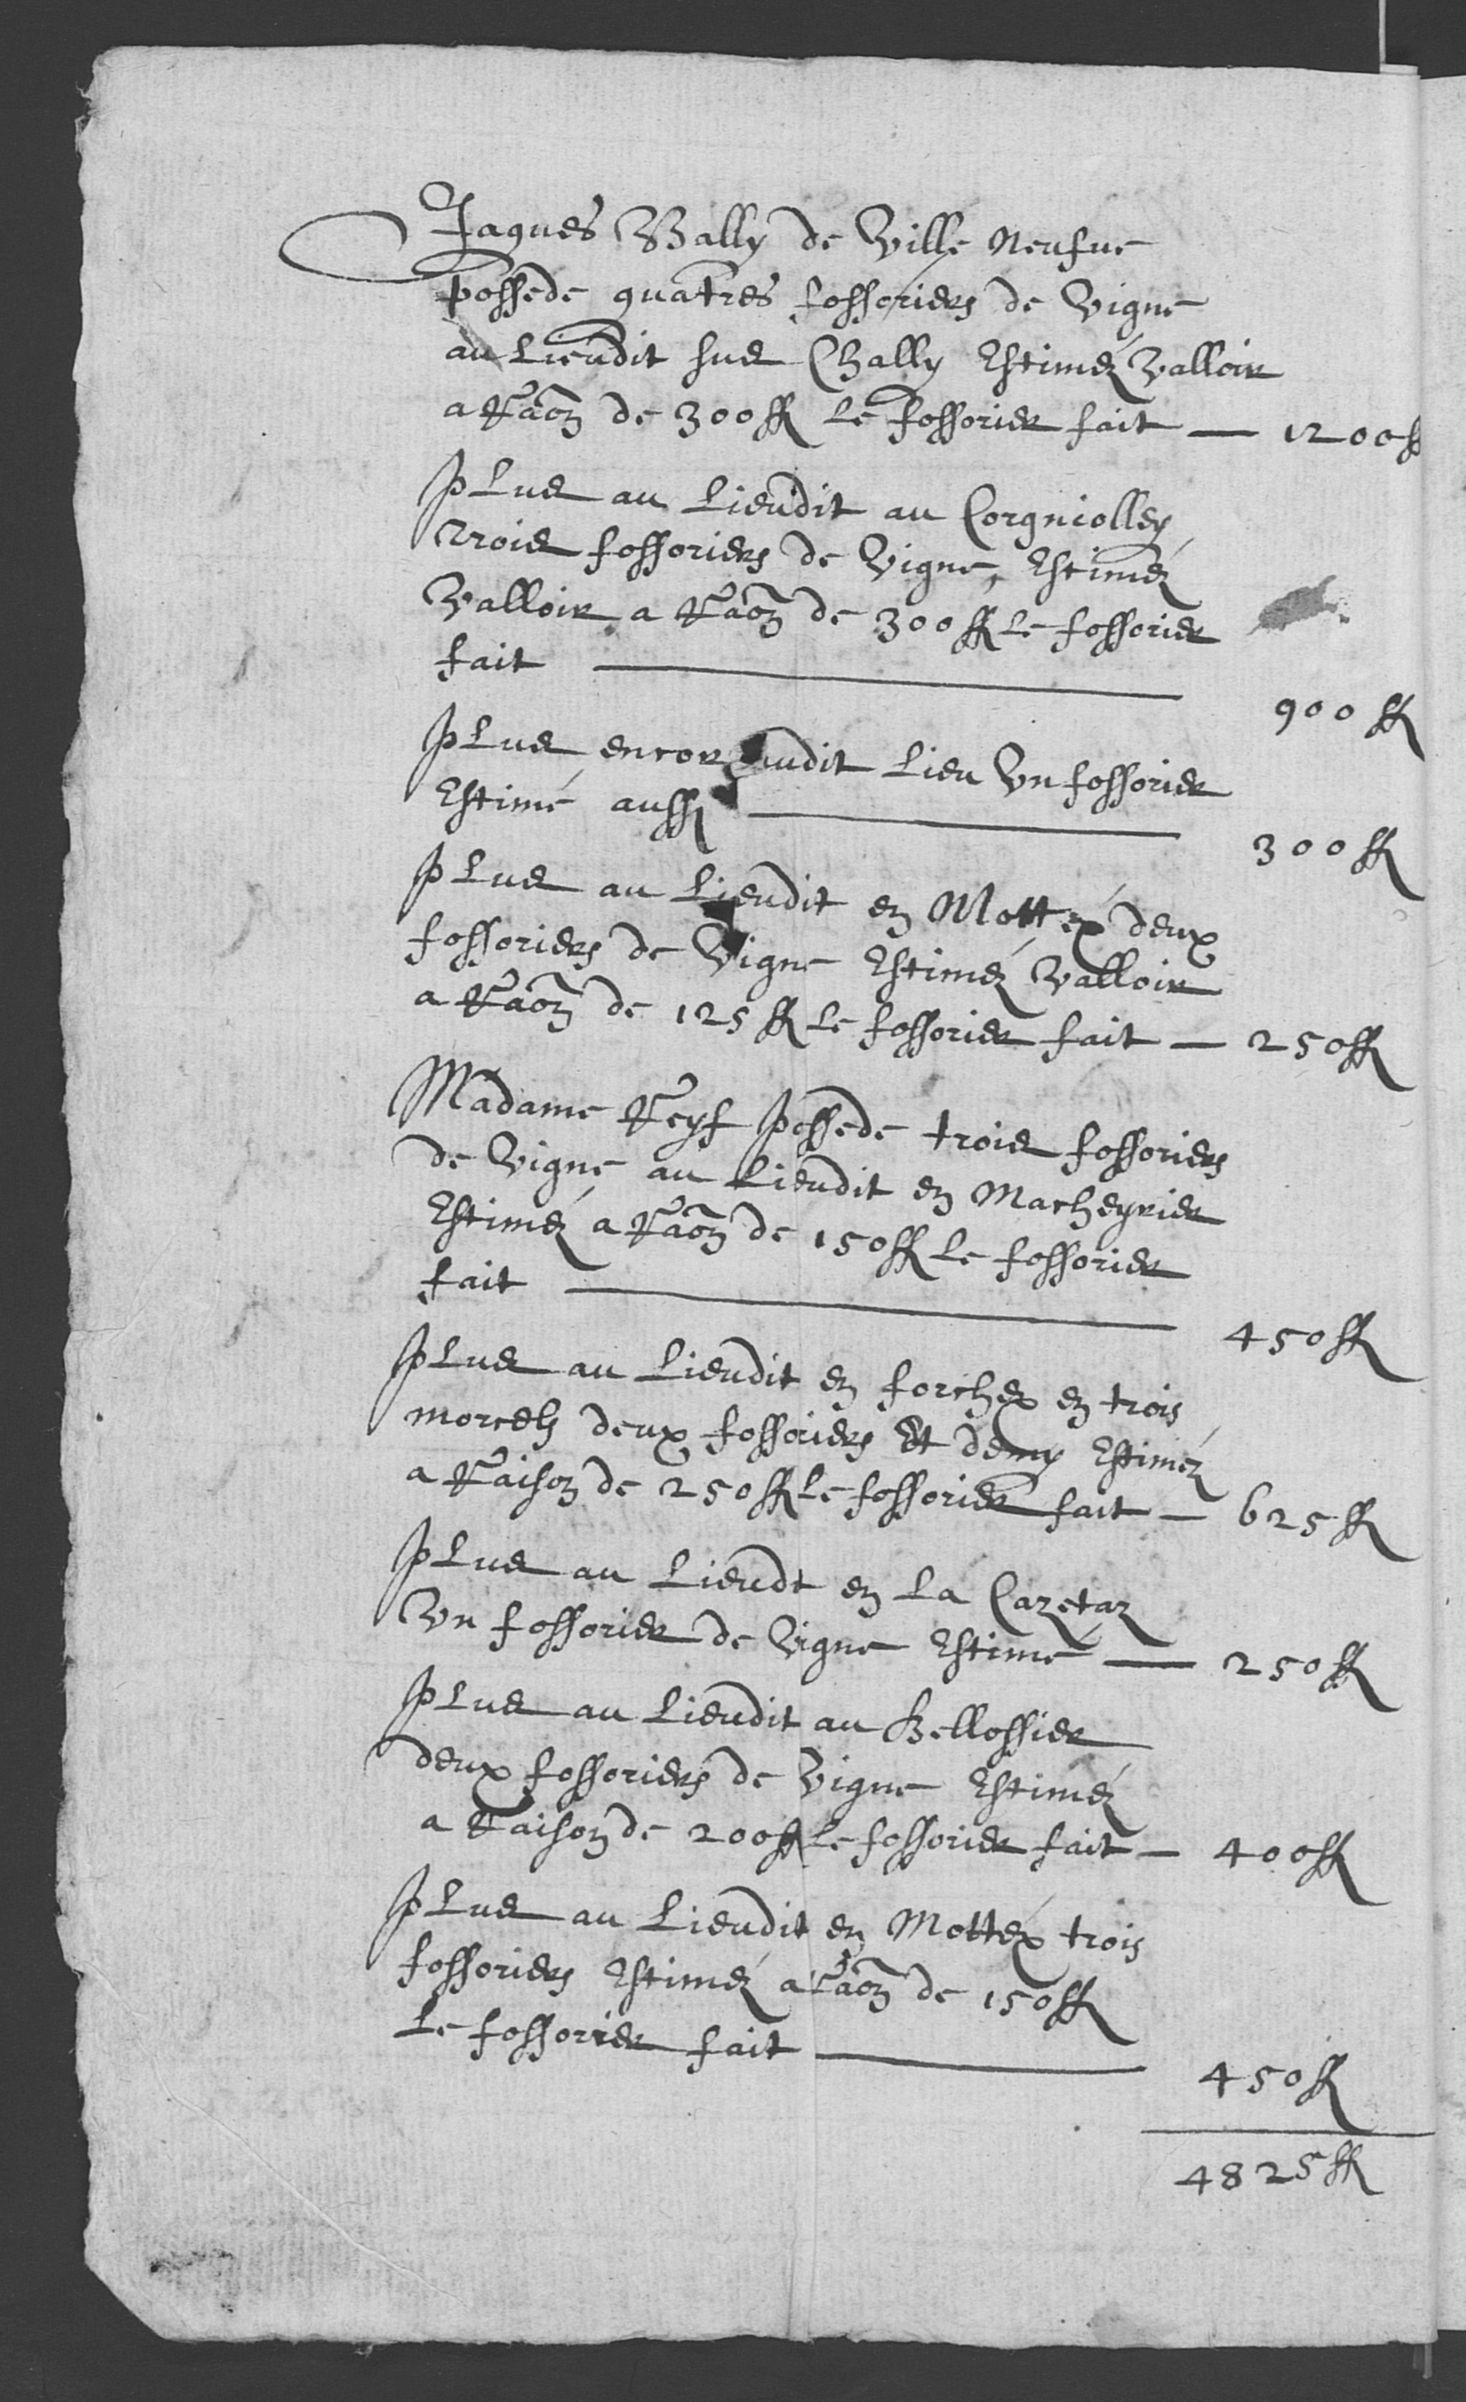 Jaques Bally de Ville Neufue
possede quatres fossoriers de Vigne
au Lieudit sus Chally Estiméz Valloir
a Raōn de 300 ff le fossorier fait — 1200 ff
Plus au Lieudit au Corgniolley
Trois fossoriers de Vigne, Estiméz
Valloir a Raōn de 300 ff le fossorier
fait — 900 ff
Plus encor audit Lieu Un fossorier
Estimé aussi — 300 ff
Plus au Lieudit en Mottéx deux
fossoriers de Vigne Estiméz Valloir
a Raōn de 125 ff le fossorier fait — 250 ff
Madame Reyf possede trois fossoriers
de Vigne au Lieudit en Macheyrier
Estiméz a Raōn de 150 ff le fossorier
fait — 450 ff
Plus au Lieudit en forchex en trois
morcels deux fossoriers Et demy Estiméz
a Raison de 250 ff le fossorier fait — 625 ff
Plus au Lieudt en La Cazetaz
Un fossorier de Vigne Estimé — 250 ff
Plus au Lieudit au Bellossier
deux fossoriers de Vigne Estiméz
a Raison de 200 ff le fossorier fait — 400 ff
Plus au Lieudit en Mottéx trois
fossoriers Estiméz a Raōn de 150 ff
Le fossorier fait — 450 ff
4825 ff